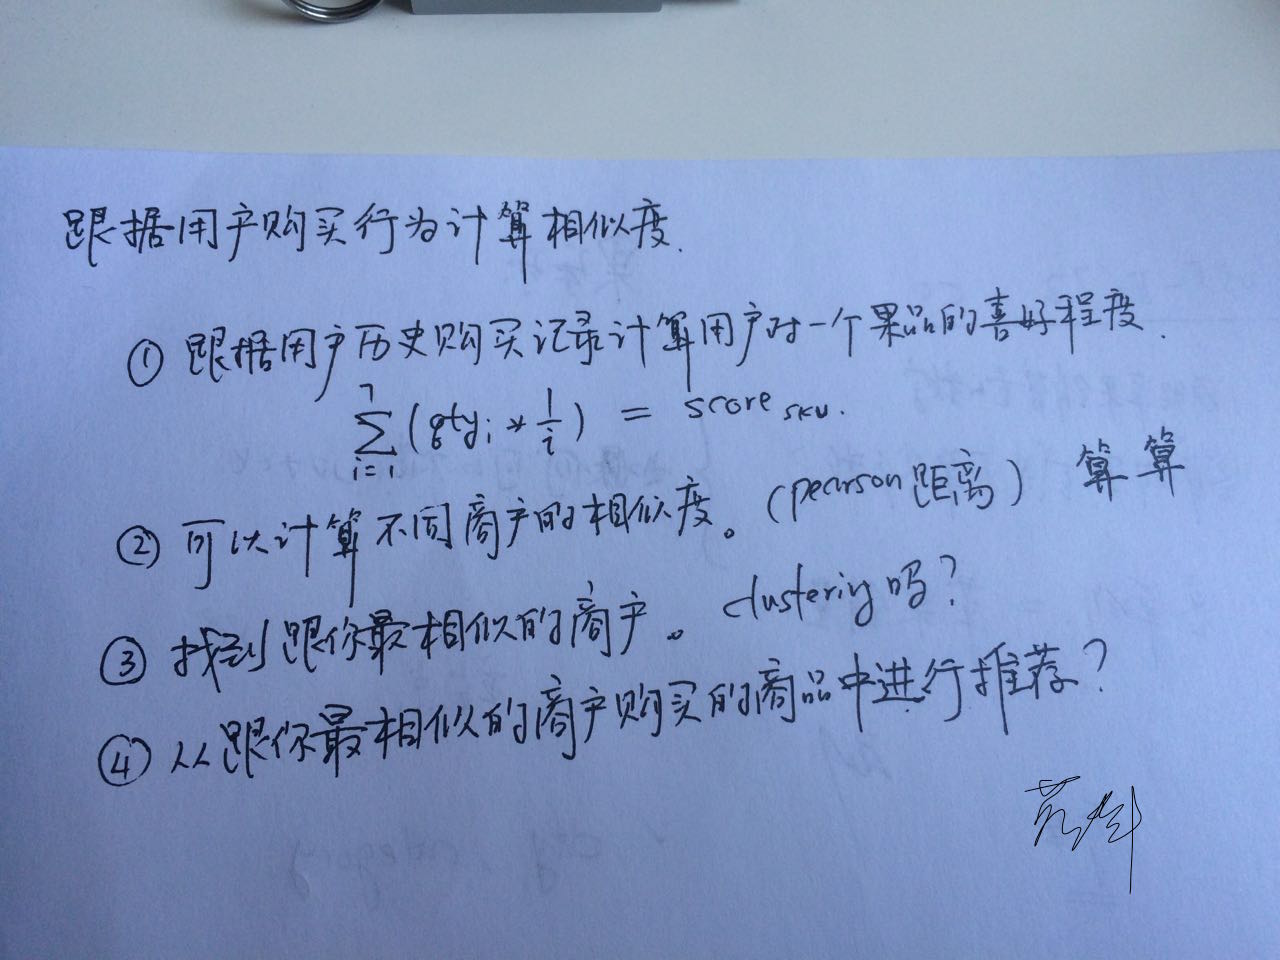 跟据用户购买行为计算相似度.
① 跟据用户历史购买记录计算用户对一个果品的喜好程度.
7
∑ (qtyᵢ * 1/i) = score sku.
i=1
② 可以计算不同商户的相似度。(pearson距离) 算 算
③ 找到跟你最相似的商户。clustering吗?
④ 从跟你最相似的商户购买的商品中进行推荐?